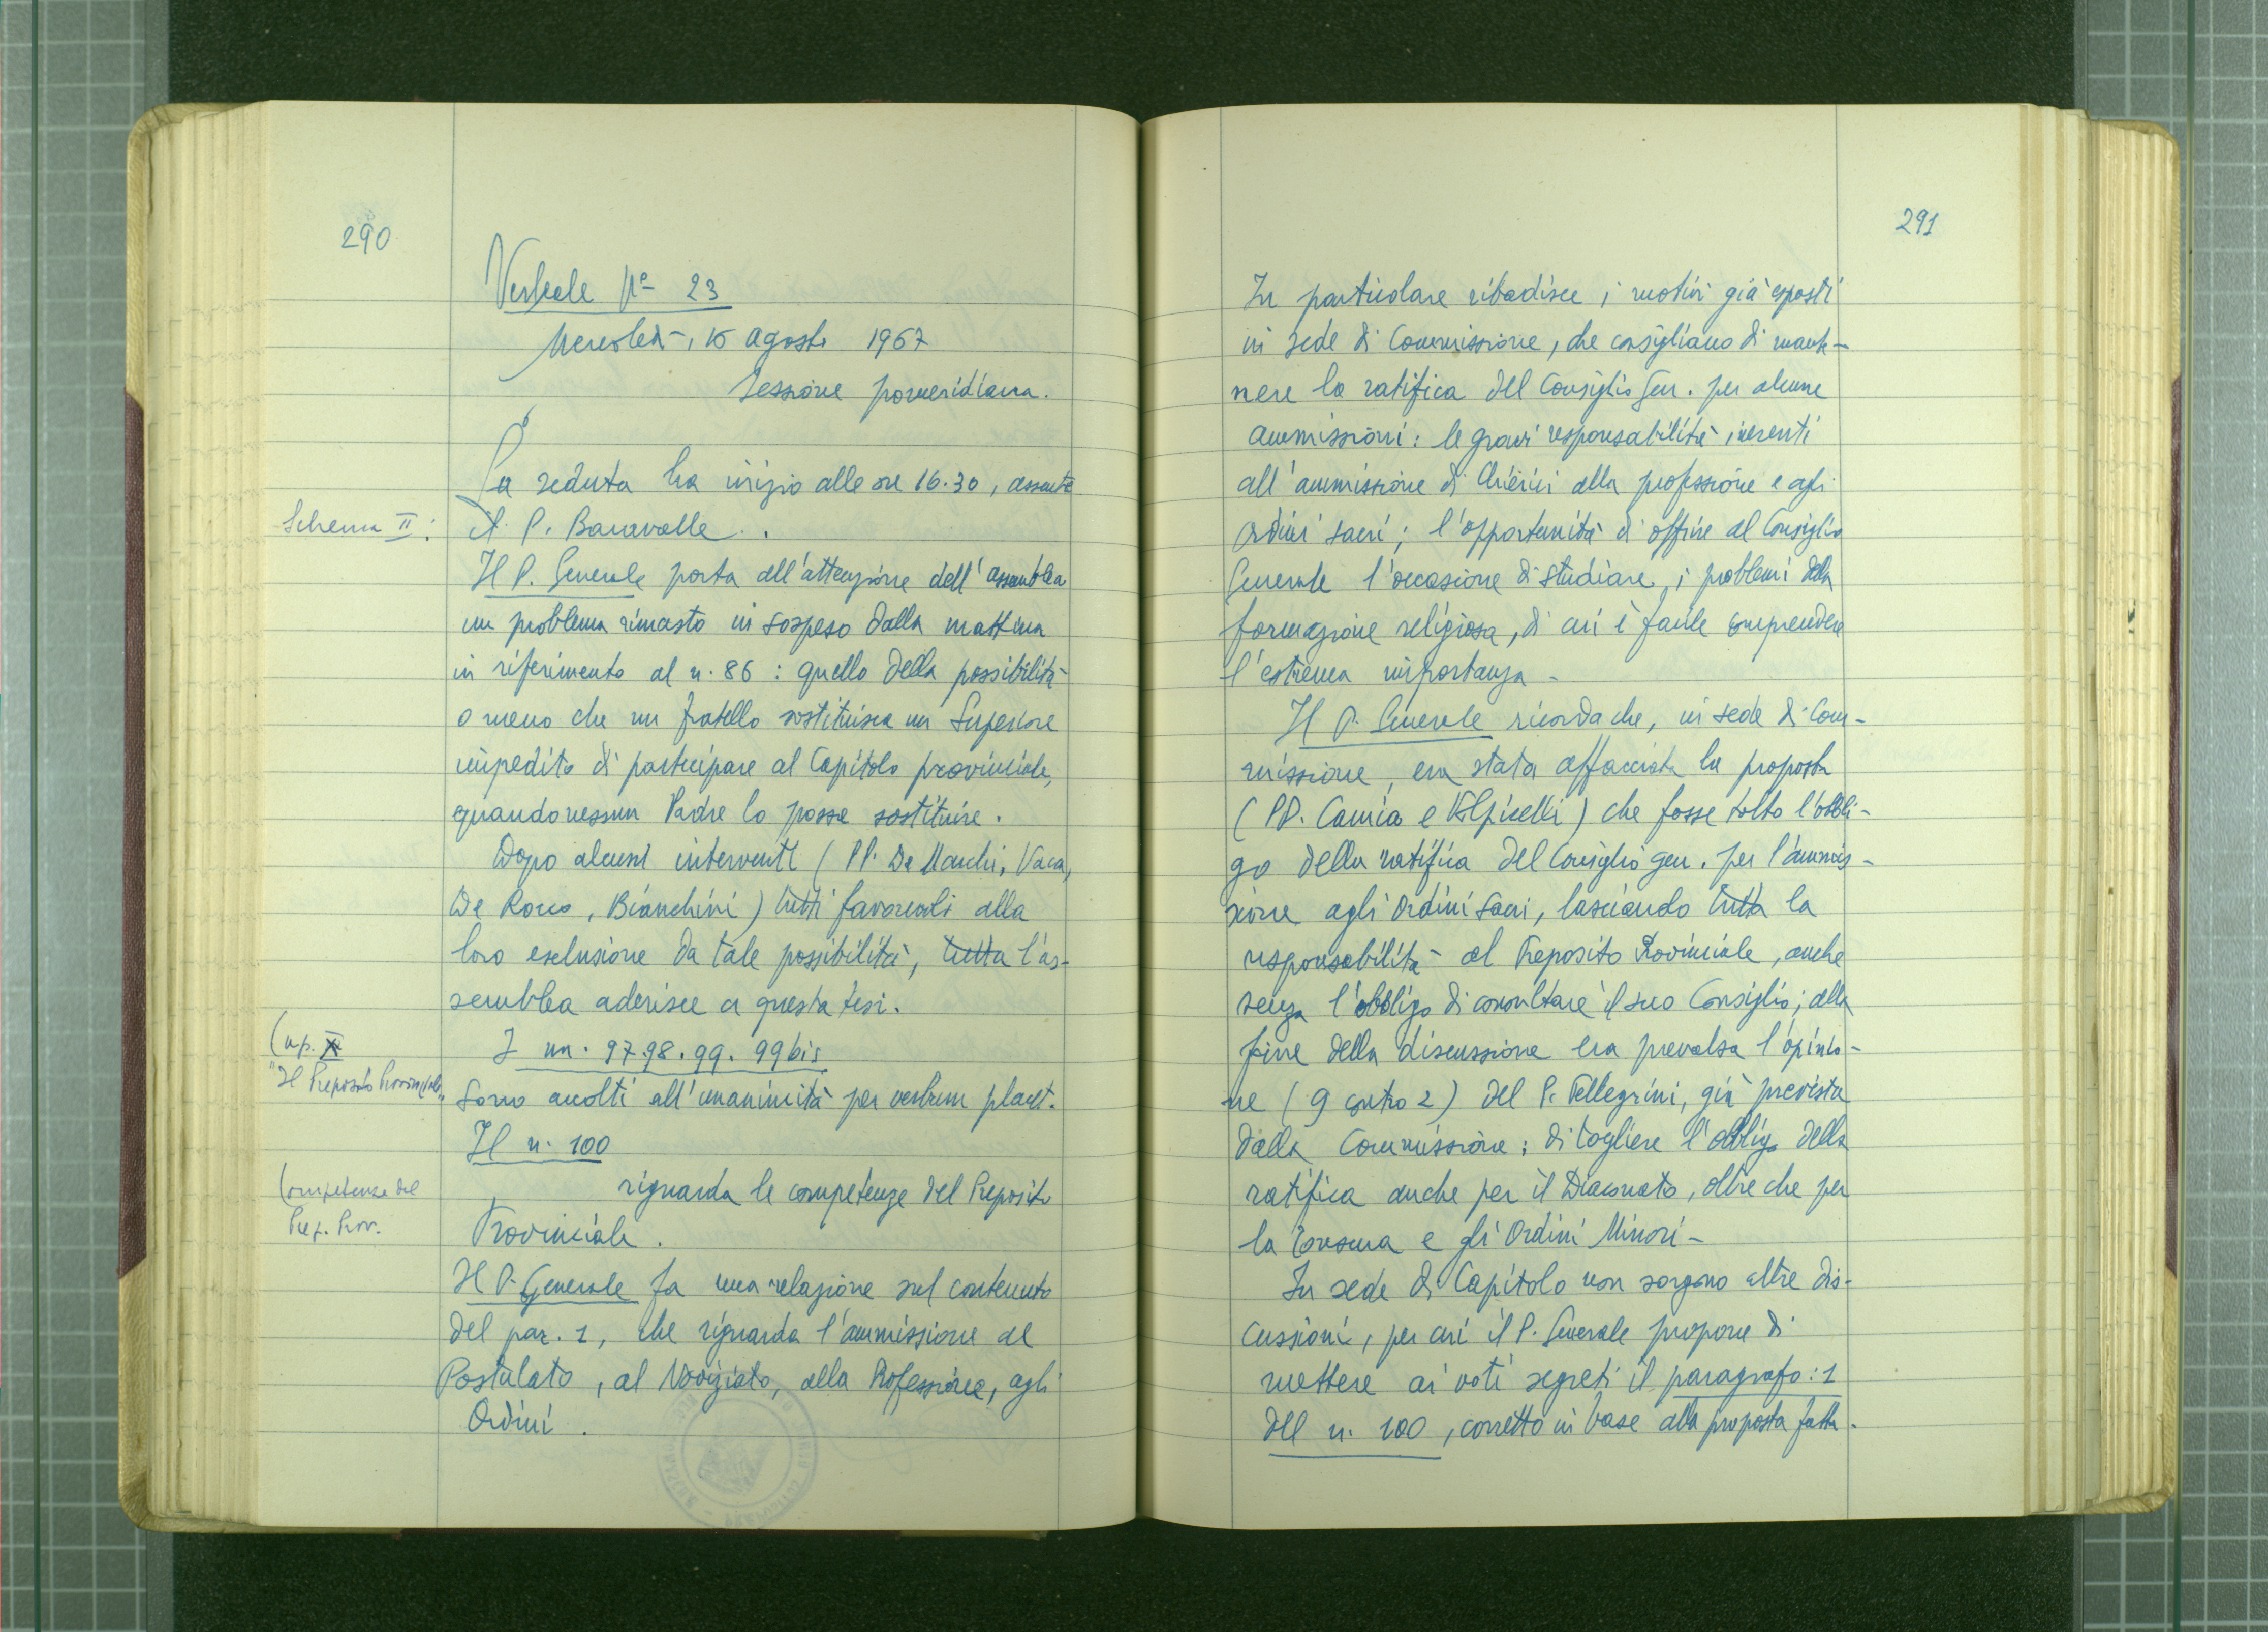 290
Verbale Nº 23
Mercoledì, 16 agosto 1967
Sessione pomeridiana.
La seduta ha inizio alle ore 16.30, assente
Schema II:
il P. Baravalle.
Il P. Generale porta all'attenzione dell'assemblea
un problema rimasto in sospeso dalla mattina
in riferimento al n. 86: quello della possibilità
o meno che un fratello sostituisca un Superiore
impedito di partecipare al Capitolo provinciale,
quando nessun Padre lo possa sostituire.
Dopo alcuni interventi (PP. De Marchi, Vaca,
De Rocco, Bianchini) tutti favorevoli alla
loro esclusione da tale possibilità, tutta l'as-
semblea aderisce a questa tesi.
Cap. II
"Il Preposito Provinciale"
I nn. 97.98.99.99bis
sono accolti all'unanimità per verbum placet.
Il n. 100
Competenze del
Prep. Prov.
riguarda le competenze del Preposito
Provinciale.
Il P. Generale fa una relazione sul contenuto
del par. 1, che riguarda l'ammissione al
Postulato, al Noviziato, alla Professione, agli
Ordini.
291
In particolare ribadisce i motivi già esposti
in sede di Commissione, che consigliano di mante-
nere la ratifica del Consiglio Gen. per alcune
ammissioni: le gravi responsabilità inerenti
all'ammissione di Chierici alla professione e agli
ordini sacri; l'opportunità di offrire al Consiglio
Generale l'occasione di studiare i problemi della
formazione religiosa, di cui è facile comprendere
l'estrema importanza -
Il P. Generale ricorda che, in sede di Com-
missione, era stata affacciata la proposta
(PP. Camia e Volpicelli) che fosse tolto l'obbli-
go della ratifica del Consiglio gen. per l'ammis-
sione agli Ordini Sacri, lasciando tutta la
responsabilità al Preposito Provinciale, anche
senza l'obbligo di consultare il suo Consiglio; alla
fine della discussione era prevalsa l'opinio-
ne (9 contro 2) del P. Pellegrini, già prevista
dalla Commissione: di togliere l'obbligo della
ratifica anche per il Diaconato, oltre che per
la Tonsura e gli Ordini Minori -
In sede di Capitolo non sorgono altre dis-
cussioni, per cui il P. Generale propone di
mettere ai voti segreti il paragrafo: 1
del n. 100, corretto in base alla proposta fatta.